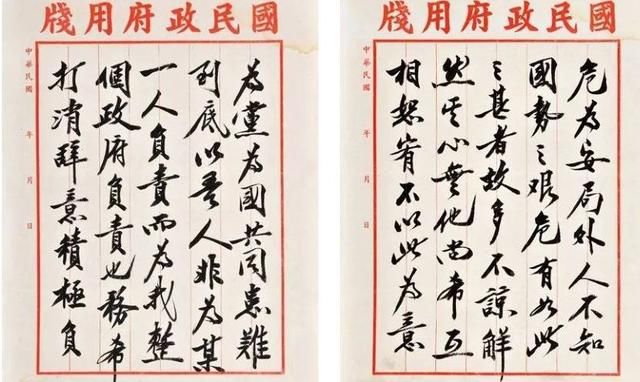 國民政府用牋
危為安局外人不知
國勢之艱危有如此
之甚者故多不諒解
然其心無他尚希互
相恕宥不以此為意
中華民國 年 月 日
國民政府用牋
為黨為國共同患難
到底以吾人非為某
一人負責而為我整
個政府負責也務希
打消辭意積極負
中華民國 年 月 日